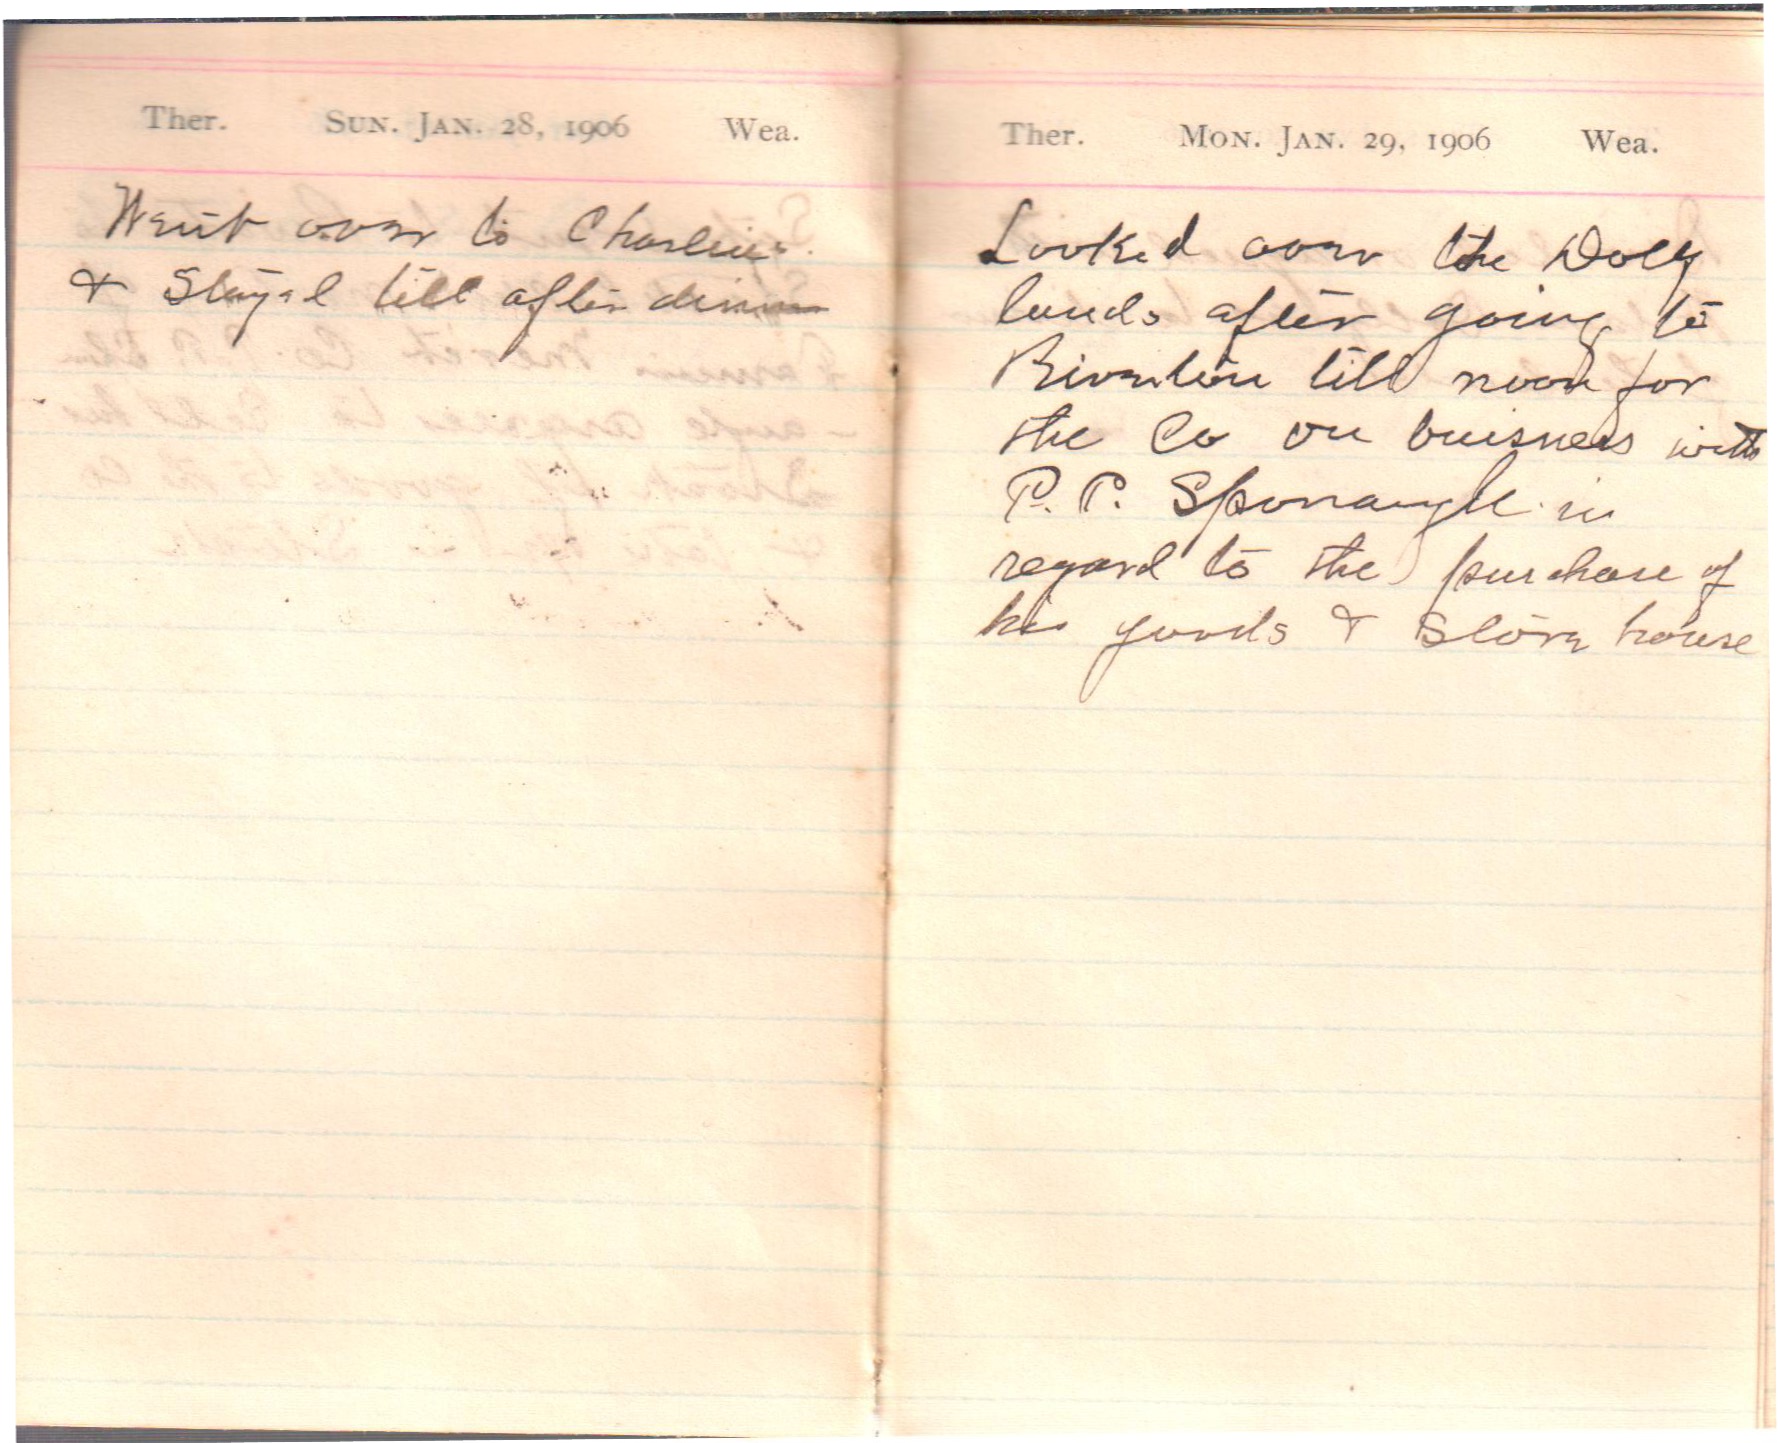 Ther. Sun. Jan. 28, 1906 Wea.
Went over to Charlie's
& Stayed till after dinner
Ther. Mon. Jan. 29, 1906 Wea.
Looked over the Dolly
lands after going to
Riverton till noon for
the Co on buisness with
P. P. Sponaugle in
regard to the purchase of
his goods & Store house